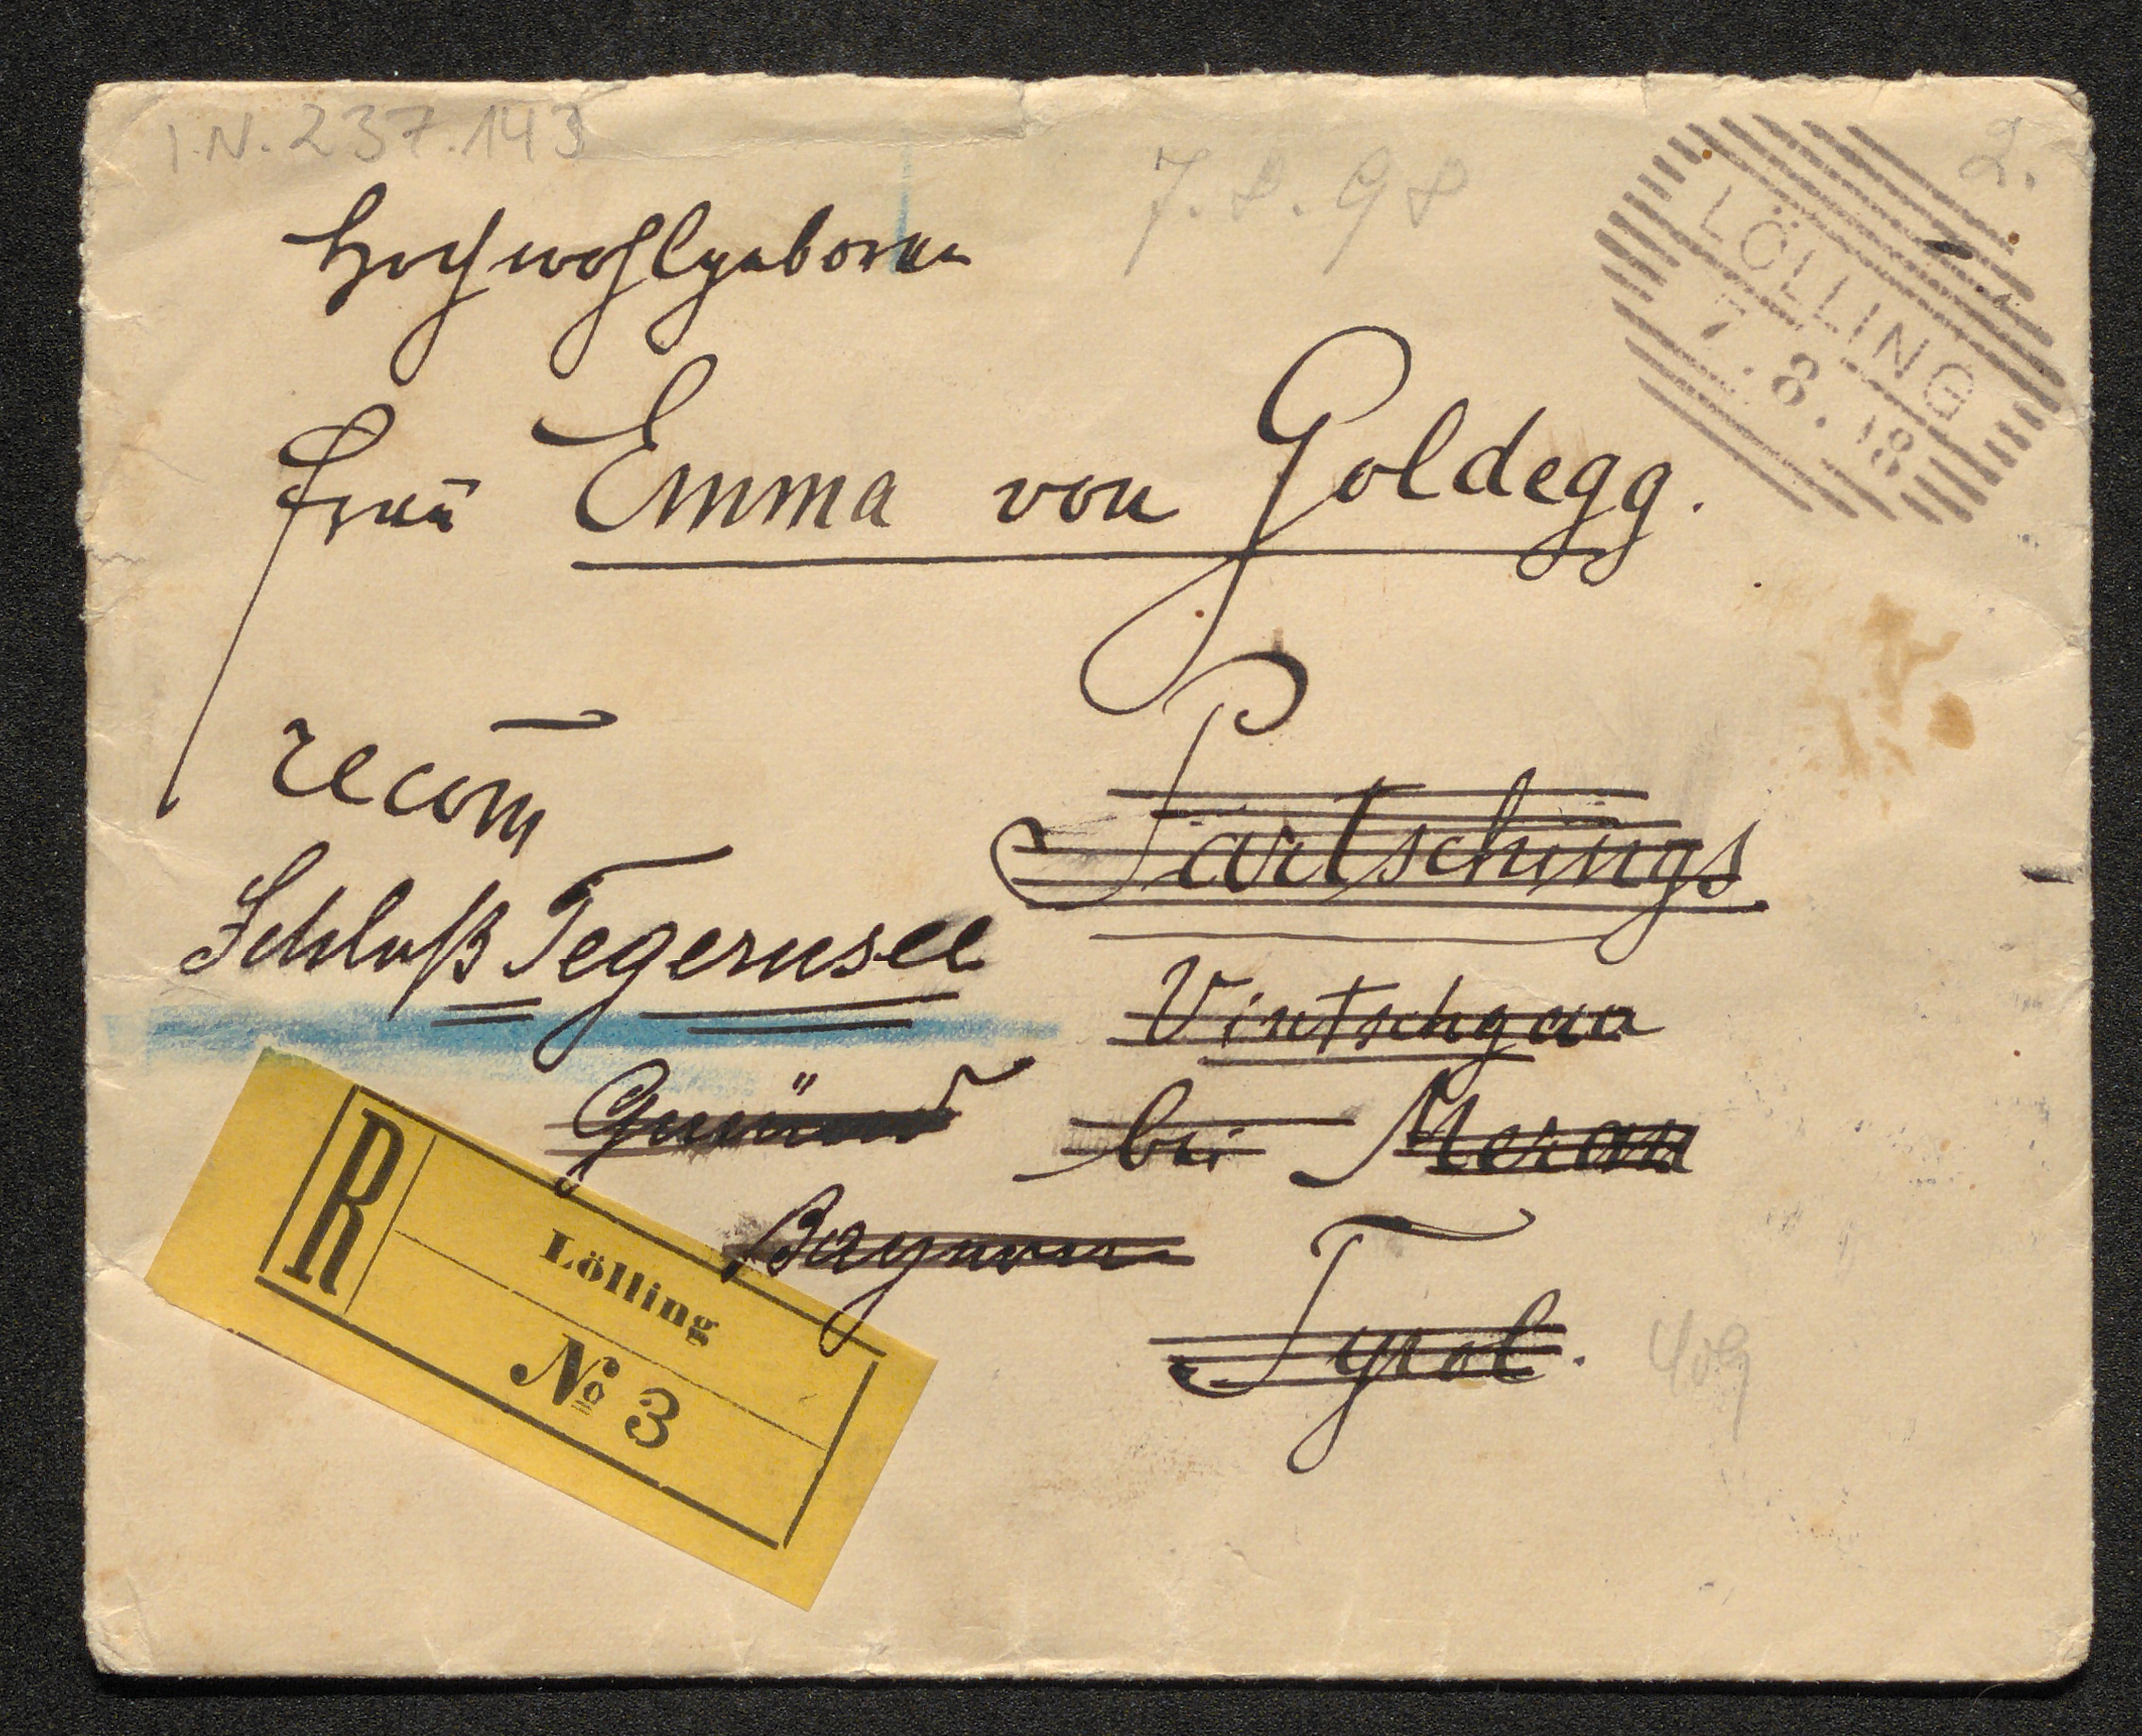 I.N. 237.143
7.8.98
2.
LÖLLING
7.8.98
Hochwohlgeboren
Frau Emma von Goldegg.
recom̄
Partschings
Schloß Tegernsee
Vintschgau
Gmünd
bei Meran
Bayern
Tyrol.
R
Lölling
No 3